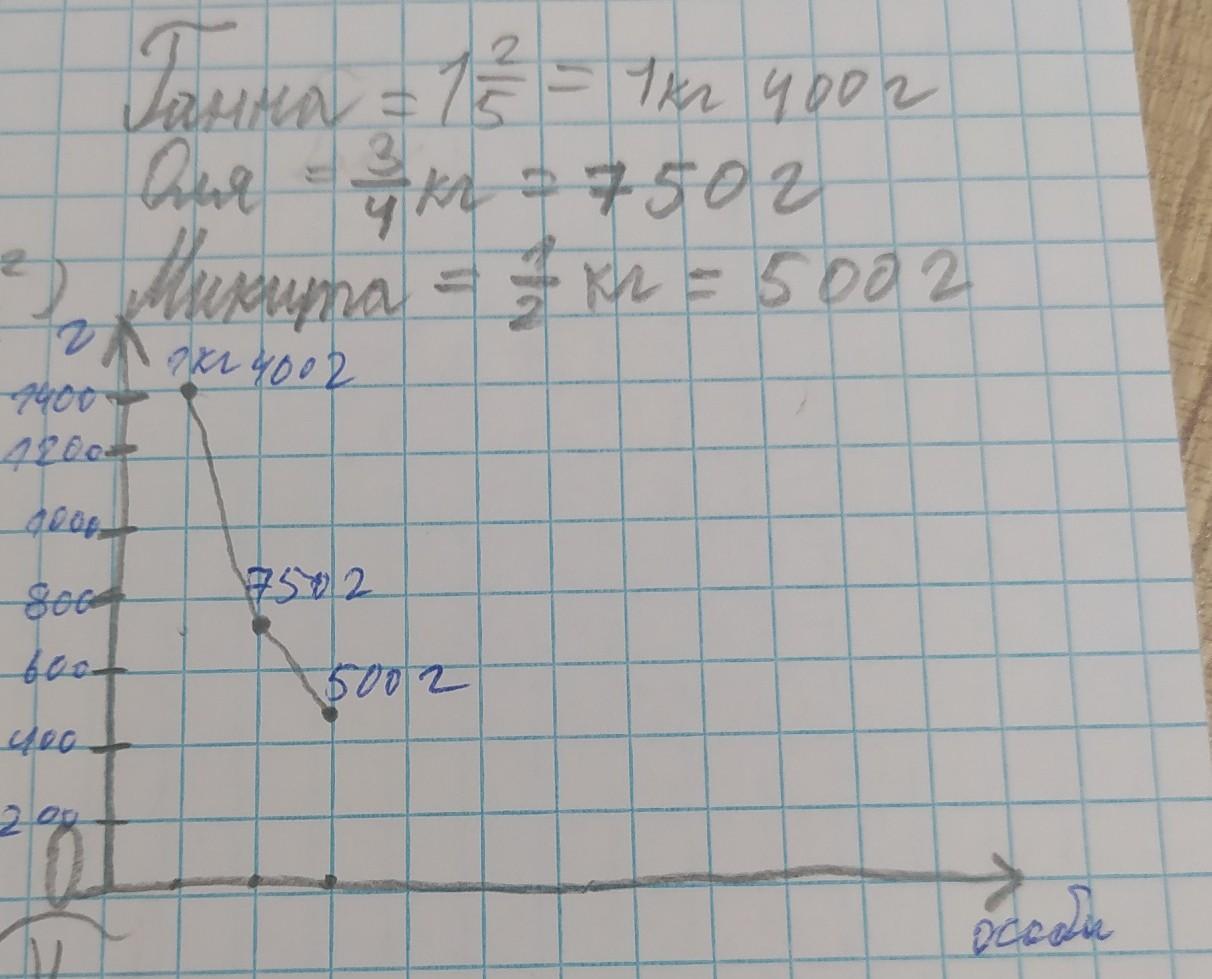 Ганна = 1 2/5 = 1кг 400 г
Оля = 3/4 кг = 750 г
г) Микита = 1/2 кг = 500 г
г
1кг 400 г
1400
1200
1000
800
750 г
600
500 г
400
200
0
особи